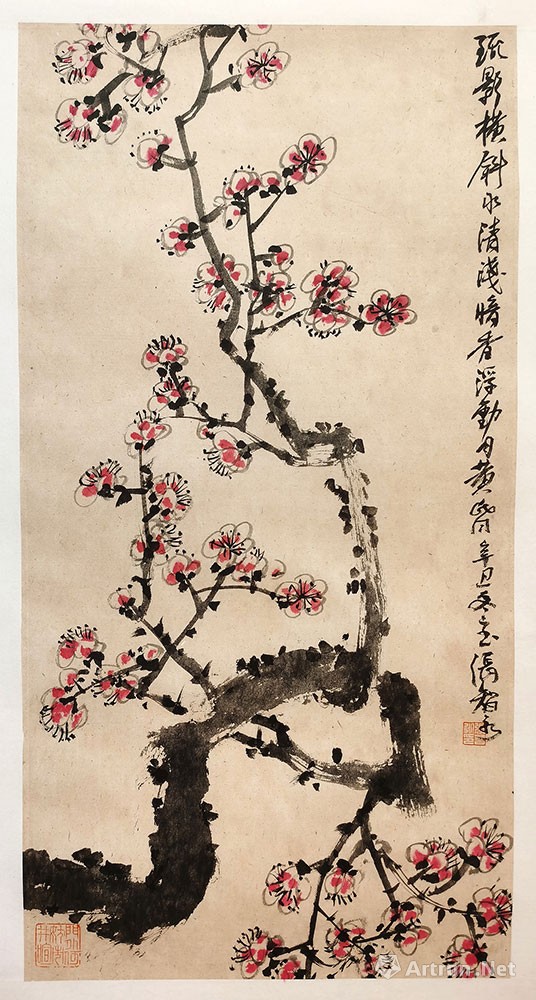 疏影橫斜水清淺暗香浮動月黃昏辛丑張
Artron.Net